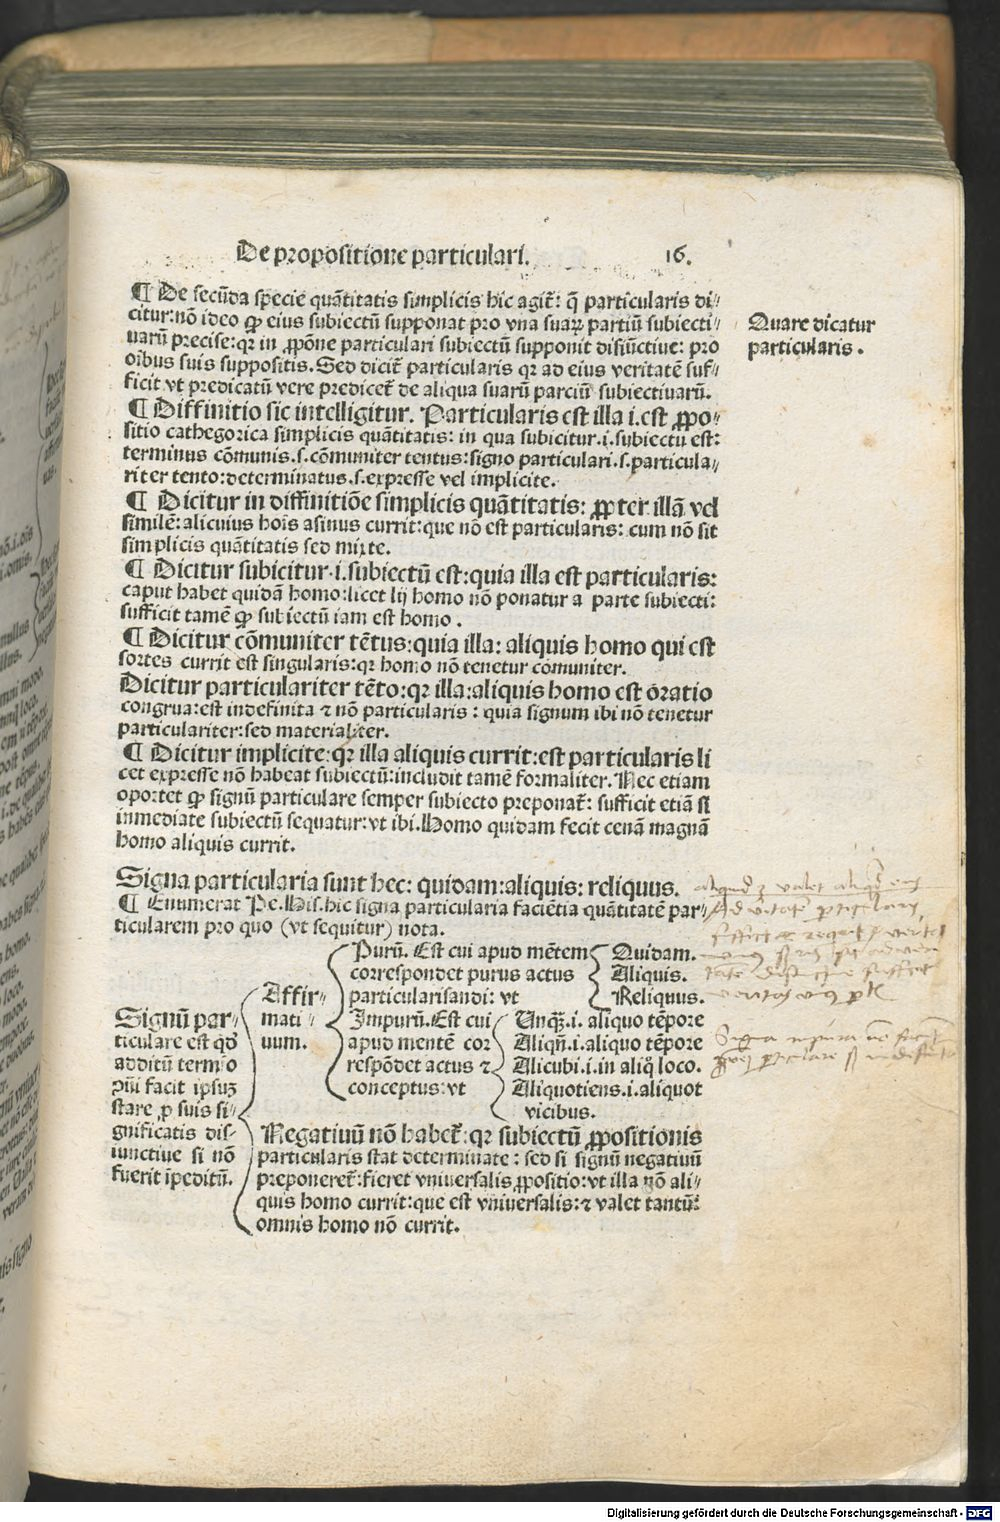 De propositione particulari. 16.
¶ De secūda specie quātitatis simplicis hic agit᷑: q̄ particularis di⸗
citur: nō ideo ꝙ eius subiectū supponat pro vna suaꝝ partiū subiecti⸗
uarū precise: qꝛ in ꝓpōne particulari subiectū supponit disiūctiue: pro
oībus suis suppositis. Sed dicit᷑ particularis qꝛ ad eius veritatē suf⸗
ficit vt predicatū vere predicet᷑ de aliqua suarū parciū subiectiuarū.
Quare dicatur
particularis.
¶ Diffinitio sic intelligitur. Particularis est illa i. est ꝓpo⸗
sitio cathegorica simplicis quātitatis: in qua subicitur .i. subiectū est:
terminus cōmunis .s. cōmuniter tentus: signo particulari .s. particula⸗
riter tento: determinatus .s. expresse vel implicite.
¶ Dicitur in diffinitiōe simplicis quātitatis: ꝓpter illā vel
similē: alicuius hoīs asinus currit: que nō est particularis: cum nō sit
simplicis quātitatis sed mixte.
¶ Dicitur subicitur .i. subiectū est: quia illa est particularis:
caput habet quidā homo: licet lij homo nō ponatur a parte subiecti:
sufficit tamē ꝙ subiectū iam est homo.
¶ Dicitur cōmuniter tētus: quia illa: aliquis homo qui est
sortes currit est singularis: qꝛ homo nō tenetur cōmuniter.
Dicitur particulariter tēto: qꝛ illa: aliquis homo est oratio
congrua: est indefinita ⁊ nō particularis: quia signum ibi nō tenetur
particulariter: sed materialiter.
¶ Dicitur implicite: qꝛ illa aliquis currit: est particularis li
cet expresse nō habeat subiectū: includit tamē formaliter. Nec etiam
oportet ꝙ signū particulare semper subiecto preponat᷑: sufficit etiā si
inmediate subiectū sequatur: vt ibi. Homo quidam fecit cenā magnā
homo aliquis currit.
Signa particularia sunt hec: quidam: aliquis: reliquus.
¶ Enumerat Pe. His. hic signa particularia faciētia quātitatē par⸗
ticularem pro quo (vt sequitur) nota.
Signū par⸗
ticulare est qd̄
additū termīo
cōi facit ipsuꝫ
stare ꝓ suis si⸗
gnificatis dis⸗
iunctiue si nō
fuerit īpeditū.
Affir⸗
mati⸗
uum.
Purū. Est cui apud mētem
correspondet purus actus
particularisandi: vt
Quidam.
Aliquis.
Reliquus.
Impurū. Est cui
apud mentē cor
respōdet actus ⁊
conceptus: vt
Unqꝫ .i. aliquo tēpore
Aliqn̄ .i. aliquo tēpore
Alicubi .i. in aliq̊ loco.
Aliquotiens .i. aliquot
vicibus.
Negatiuū nō habet᷑: qꝛ subiectū ꝓpositionis
particularis stat determinate: sed si signū negatiuū
preponeret᷑: fieret vniuersalis ꝓpositio: vt illa nō ali⸗
quis homo currit: que est vniuersalis: ⁊ valet tantū:
omnis homo nō currit.
Digitalisierung gefördert durch die Deutsche Forschungsgemeinschaft - DFG